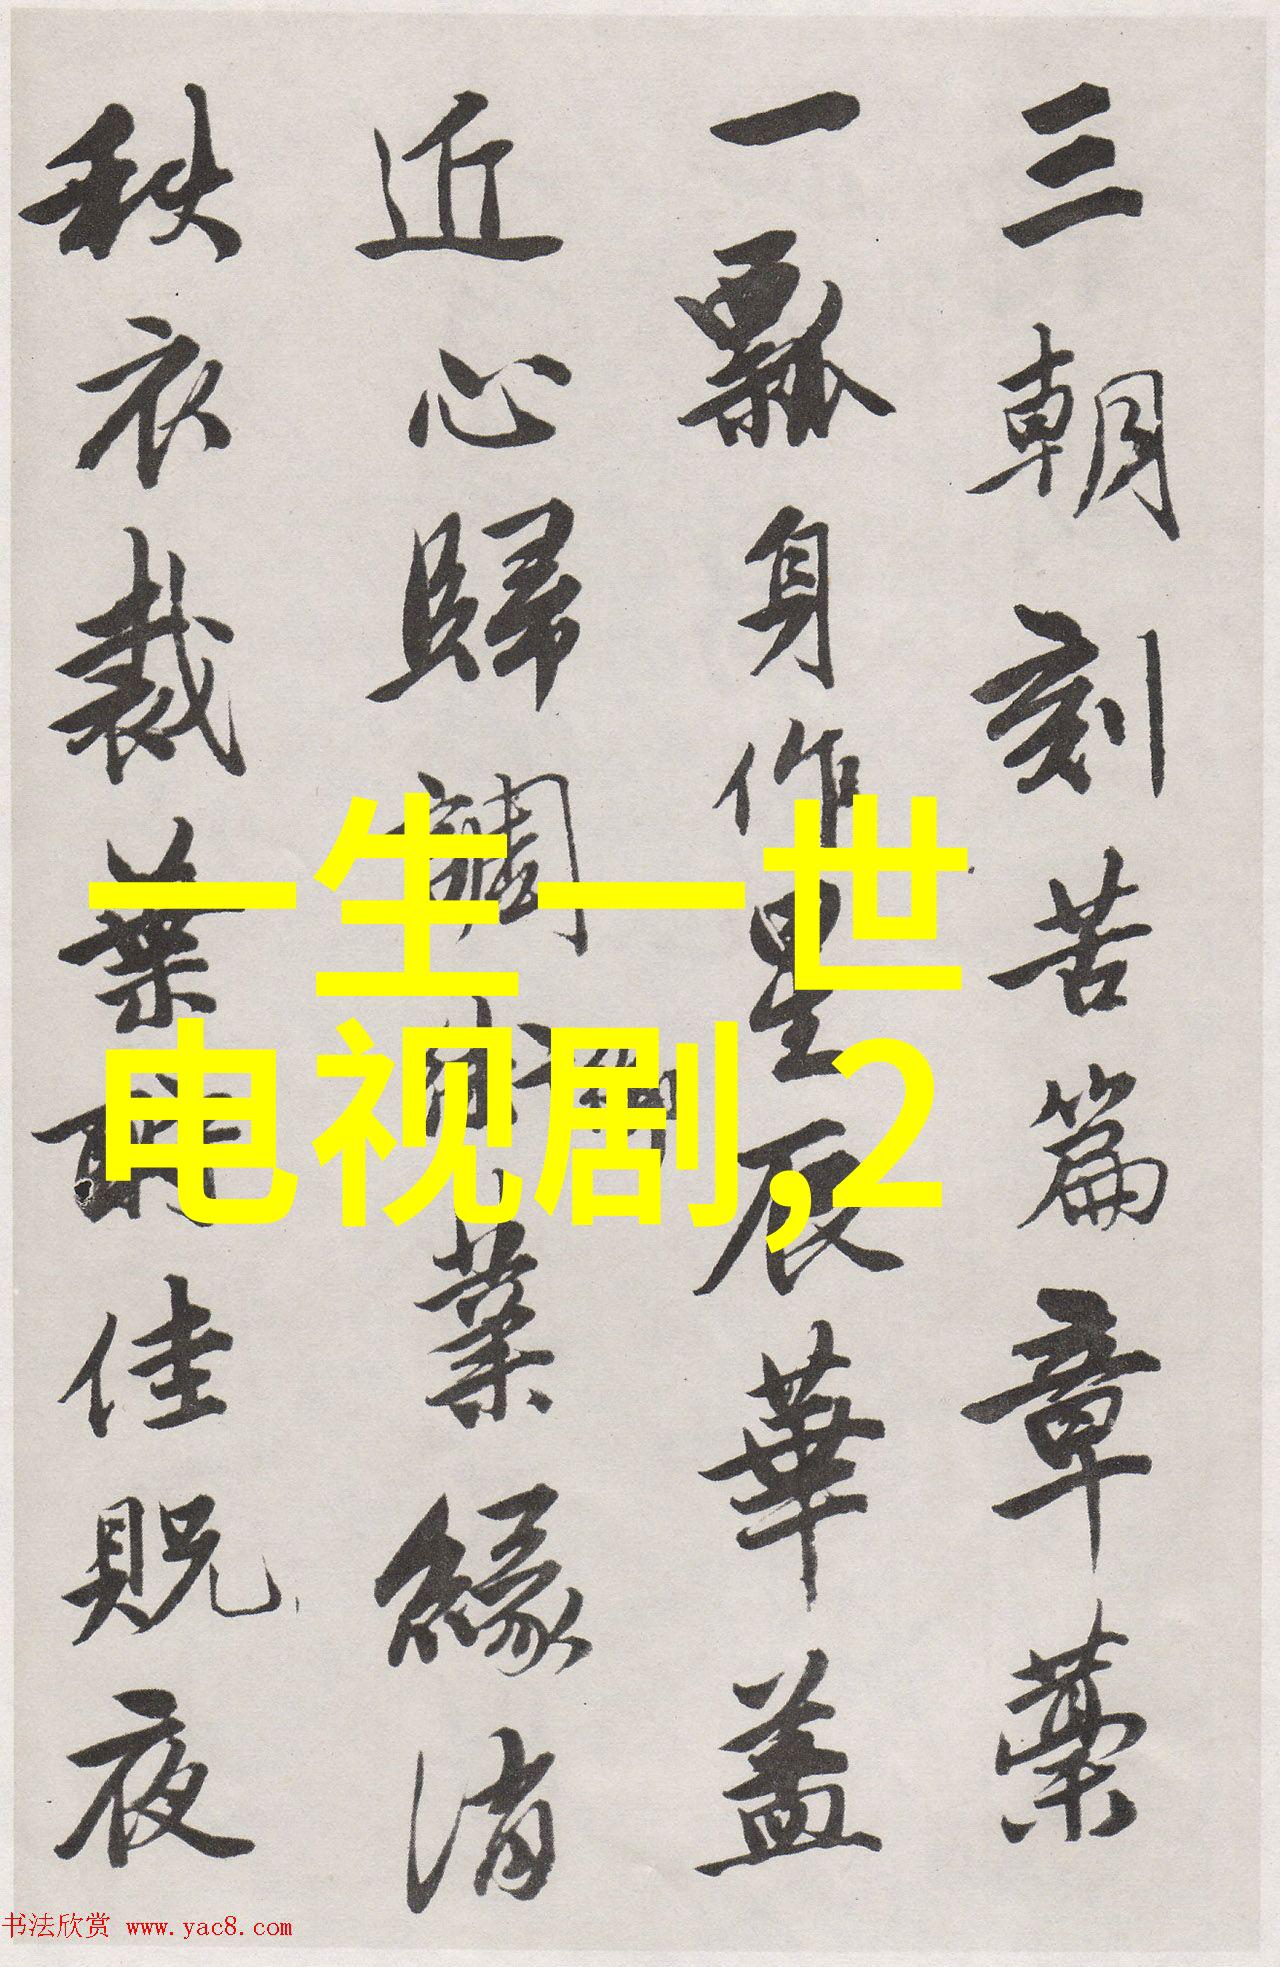 三朝刻苦篇章藁
一瓢身作星辰華蓋
近心歸調
葉緣消
秩衣裁葉酬佳貺夜
一生一世
电视剧,2
书法欣赏 www.yac8.com